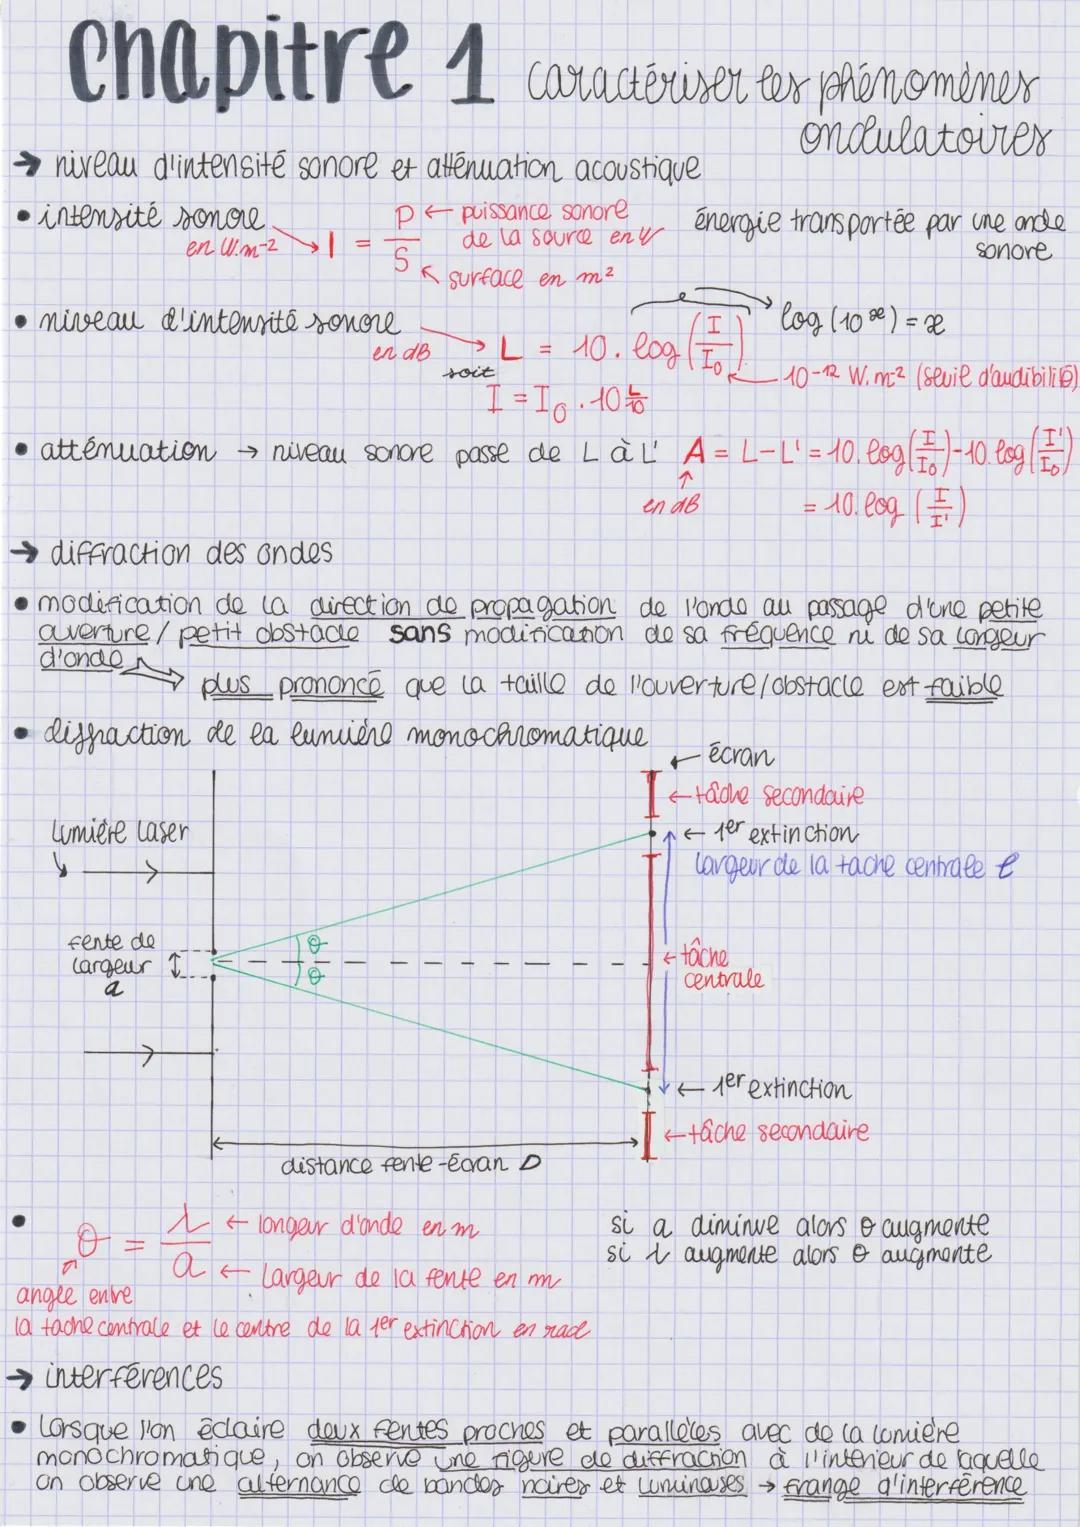 Chapitre 1 caractériser les phénomènes
ondulatoires
→ niveau d'intensité sonore et atténuation acoustique
• intensité sonore
en W.m-2
I = P/S
← puissance sonore
de la source en W
surface en m²
énergie transportée par une onde
sonore
• niveau d'intensité sonore
en dB
L = 10. log (I/I₀)
log (10^x) = x
10-12 W.m² (seuil d'audibilité)
soit
I = I₀ . 10^(L/10)
• atténuation → niveau sonore passe de L à L' A = L-L' = 10. log(I/I₀)-10. log(I'/I₀)
en dB
= 10. log (I/I')
→ diffraction des ondes
• modification de la direction de propagation de l'onde au passage d'une petite
ouverture / petit obstacle sans modification de sa fréquence ni de sa longeur
d'onde
plus prononcé que la taille de l'ouverture/obstacle est faible
• diffraction de la lumière monochromatique
← écran
← tâche secondaire
lumière laser
← 1er extinction
largeur de la tache centrale l
fente de
largeur
a
θ
θ
← tâche
centrale
← 1er extinction
← tâche secondaire
distance fente-écran D
• θ = λ/a
← longeur d'onde en m
← Largeur de la fente en m
si a diminue alors θ augmente
si λ augmente alors θ augmente
angle entre
la tache centrale et le centre de la 1er extinction en rad
→ interférences
• Lorsque l'on éclaire deux fentes proches et parallèles avec de la lumière
monochromatique, on observe une figure de diffraction à l'intérieur de laquelle
on observe une alternance de bandes noires et lumineuses → frange d'interférence